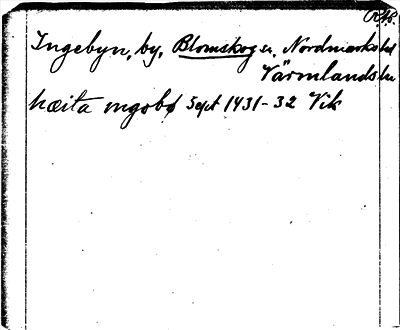 OAU.
Ingebyn, by, Blomskog sn. Nordmarks hd
Värmlands län
hæita ıngəbø Sept 1931-32 Vik